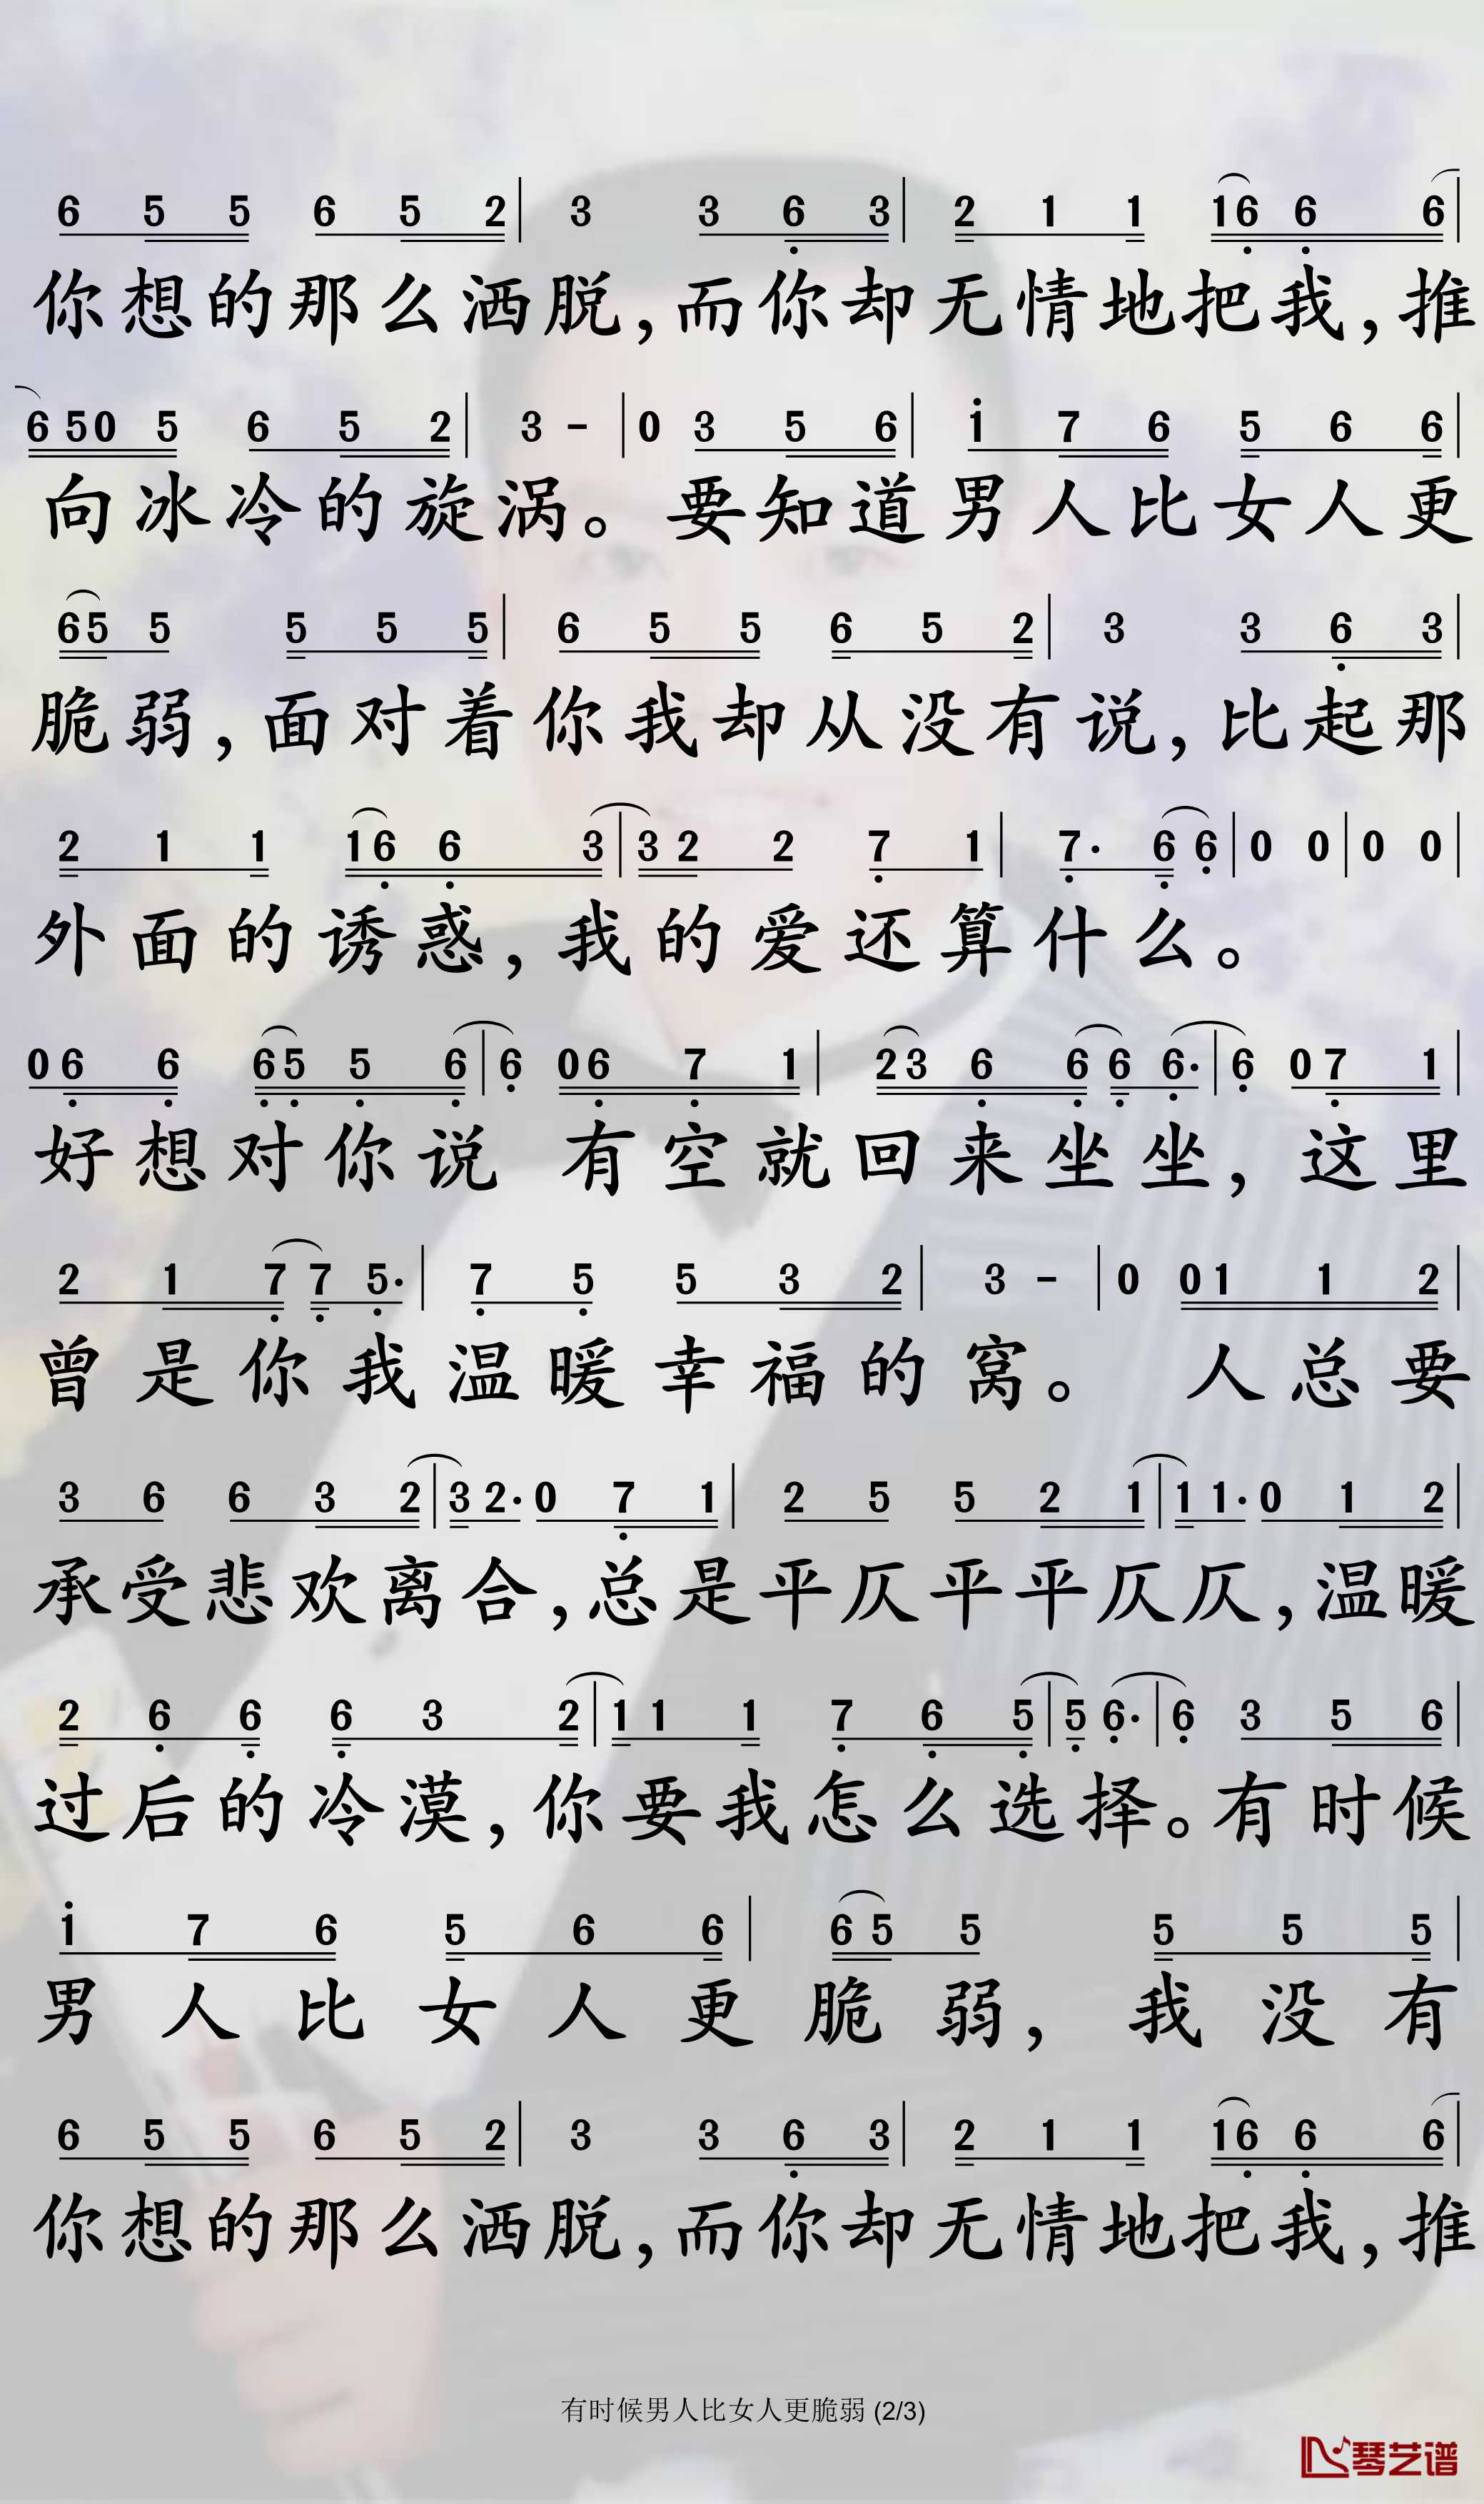 6 5 5 6 5 2 | 3 3 6 3 | 2 1 1 16 6 6 |
你想的那么洒脱,而你却无情地把我,推
6 50 5 6 5 2 | 3 - | 0 3 5 6 | i 7 6 5 6 6 |
向冰冷的旋涡。要知道男人比女人更
65 5 5 5 5 | 6 5 5 6 5 2 | 3 3 6 3 |
脆弱,面对着你我却从没有说,比起那
2 1 1 16 6 3 | 3 2 2 7 1 | 7· 6 6 | 0 0 | 0 0 |
外面的诱惑,我的爱还算什么。
0 6 6 65 5 6 | 6 06 7 1 | 23 6 6 6 6· | 6 0 7 1 |
好想对你说 有空就回来坐坐,这里
2 1 7 7 5· | 7 5 5 3 2 | 3 - | 0 01 1 2 |
曾是你我温暖幸福的窝。 人总要
3 6 6 3 2 | 3 2· 0 7 1 | 2 5 5 2 1 | 1 1· 0 1 2 |
承受悲欢离合,总是平仄平平仄仄,温暖
2 6 6 6 3 2 | 1 1 1 7 6 5 | 5 6· | 6 3 5 6 |
过后的冷漠,你要我怎么选择。有时候
i 7 6 5 6 6 | 6 5 5 5 5 5 |
男人比女人更脆弱,我没有
6 5 5 6 5 2 | 3 3 6 3 | 2 1 1 16 6 6 |
你想的那么洒脱,而你却无情地把我,推
有时候男人比女人更脆弱 (2/3)
琴艺谱